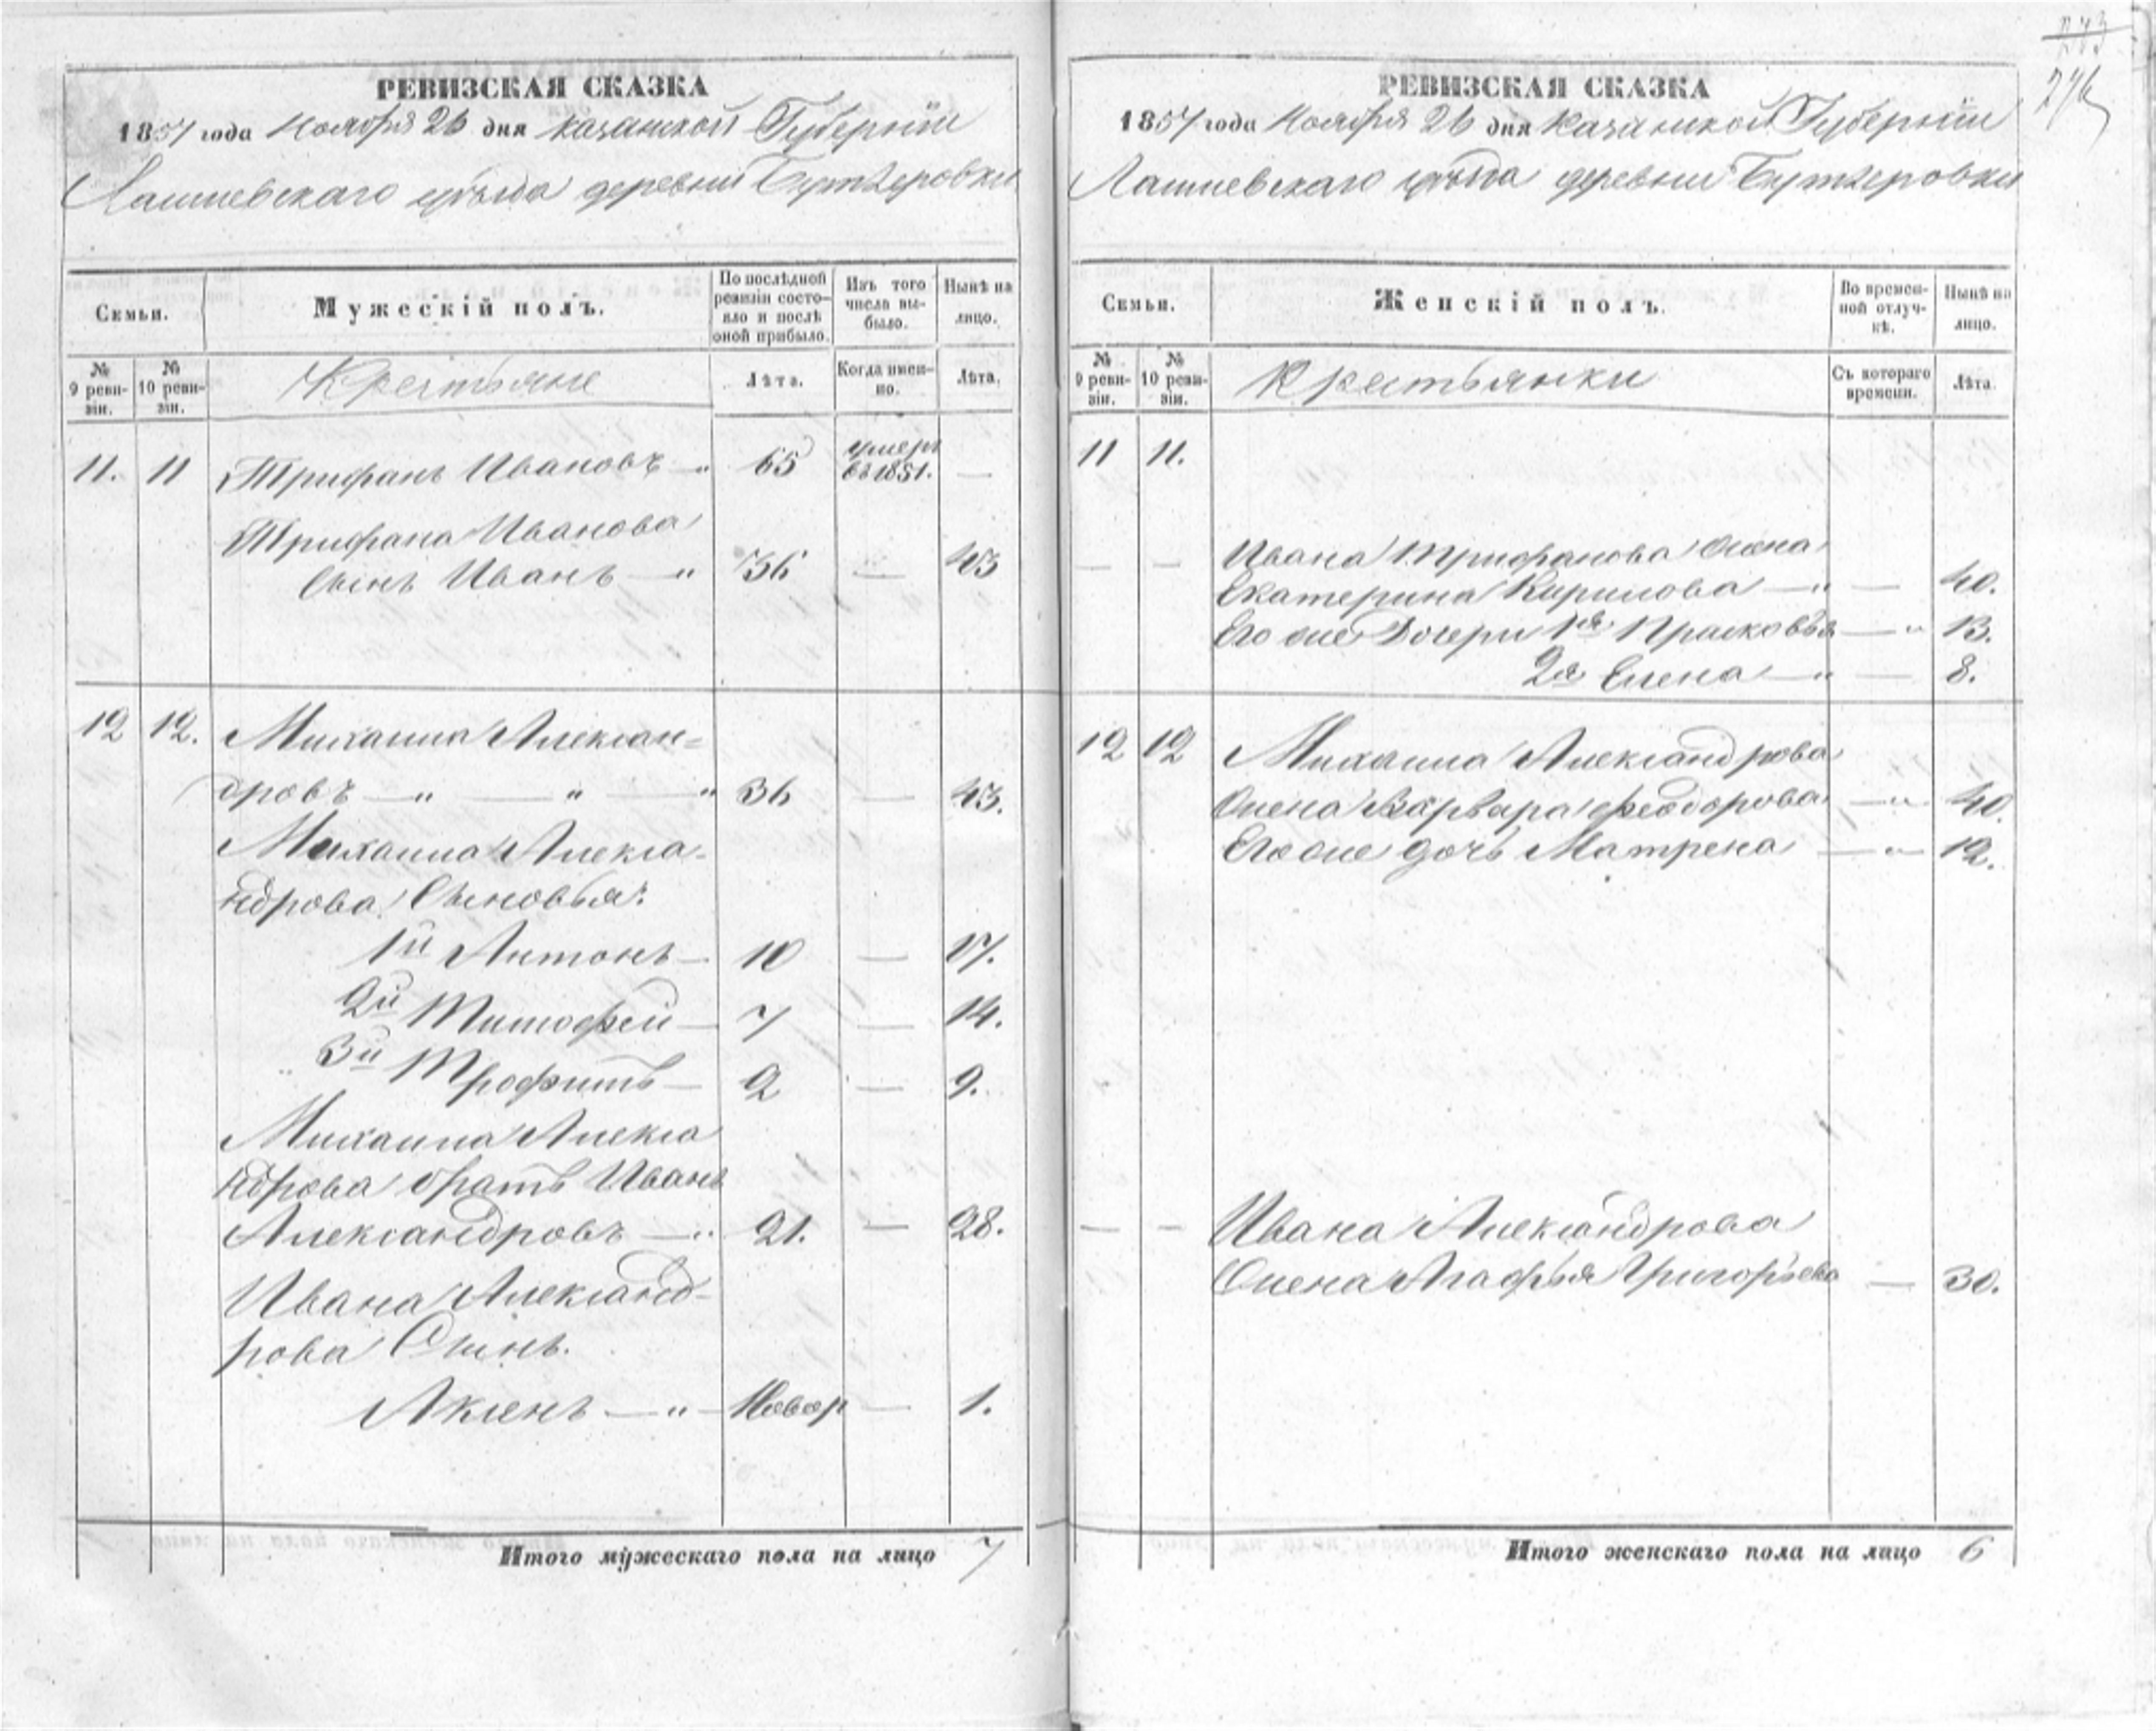 243
246
РЕВИЗСКАЯ СКАЗКА
1857 года Ноября 26 дня Казанской Губернiи
Лаишевскаго уѣзда деревни Бутлеровки
Семьи.
Мужескiй полъ.
По послѣдной ревизiи состояло и послѣ оной прибыло.
Изъ того числа выбыло.
Нынѣ на лицо.
№ 9 ревизiи.
№ 10 ревизiи.
Крестьяне
Лѣта.
Когда именно.
Лѣта.
11. 11 Трифанъ Ивановъ — " 65 умеръ въ 1851. —
Трифана Иванова
Сынъ Иванъ — " 36 — 43
12 12. Михаила Алексан=
дровъ — " — " — " 36 — 43.
Михаила Алекса-
ндрова Сыновья:
1й Антонъ — 10 — 17.
2й Тимофей — 7 — 14.
3й Трофимъ — 2 — 9.
Михаила Алекса
ндрова братъ Иванъ
Александровъ — " 21. — 28.
Ивана Александ-
рова Сынъ.
Аксенъ — " — Новор — 1.
Итого мужескаго пола на лицо 7
РЕВИЗСКАЯ СКАЗКА
1857 года Ноября 26 дня Казанской Губернiи
Лаишевскаго уѣзда деревни Бутлеровки
Семьи.
Женскiй полъ.
Во временной отлучкѣ.
Нынѣ на лицо.
№ 9 ревизiи.
№ 10 ревизiи.
Крестьянки
Съ котораго времени.
Лѣта.
11 11.
— — Ивана Трифанова Жена
Екатерина Кирилова — " — 40.
Его же Дочери 1я Прасковья — " 13.
2я Елена — " — 8.
12 12 Михаила Александрова
Жена Варвара Феодорова — " — 40.
Его же дочь Матрена — " — 12.
— — Ивана Александрова
Жена Агафья Григорьева — 30.
Итого женскаго пола на лицо 6